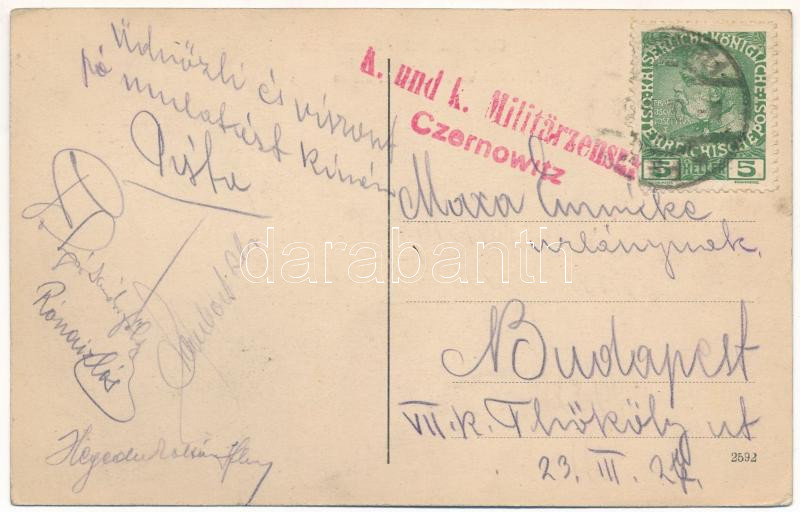 Üdvözli és viszont
jó mulatást kíván
Pista
Rónai
Hegedus
K. und k. Militärzensur
Czernowitz
KAISERLICHE KÖNIGLICHE
ÖSTERREICHISCHE POST
5 HELLER 5
Maxa Emmike
urlánynak
Budapest
VII. k. Thököly ut
23. III. 27.
2592
darabanth